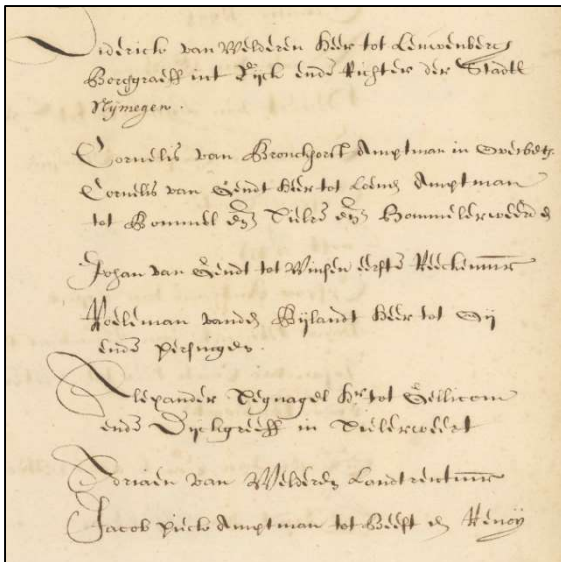 Diderick van Welderen Heer tot Leuwenberg
Borggraeff int Ryck ende Richter der Stadtt
Nijmegen.
Cornelis van Bronchorst Amptman in Overbet.
Cornelis van Gendt Heer tot Loenen Amptman
tot Bommel en Tielre en Bommelerweerden
Johan van Gendt tot Winsen eerste Reeckenmr
Roeleman vanden Bijlandt Heer tot
ende Persingen.
Alexander Tegnagel Hr tot Gellicom
ende Dijckgreeff in Tielerweert
Adriaen van Welderen Landtrentmr
Jacob Pieck Amptman tot Beest en Renoy